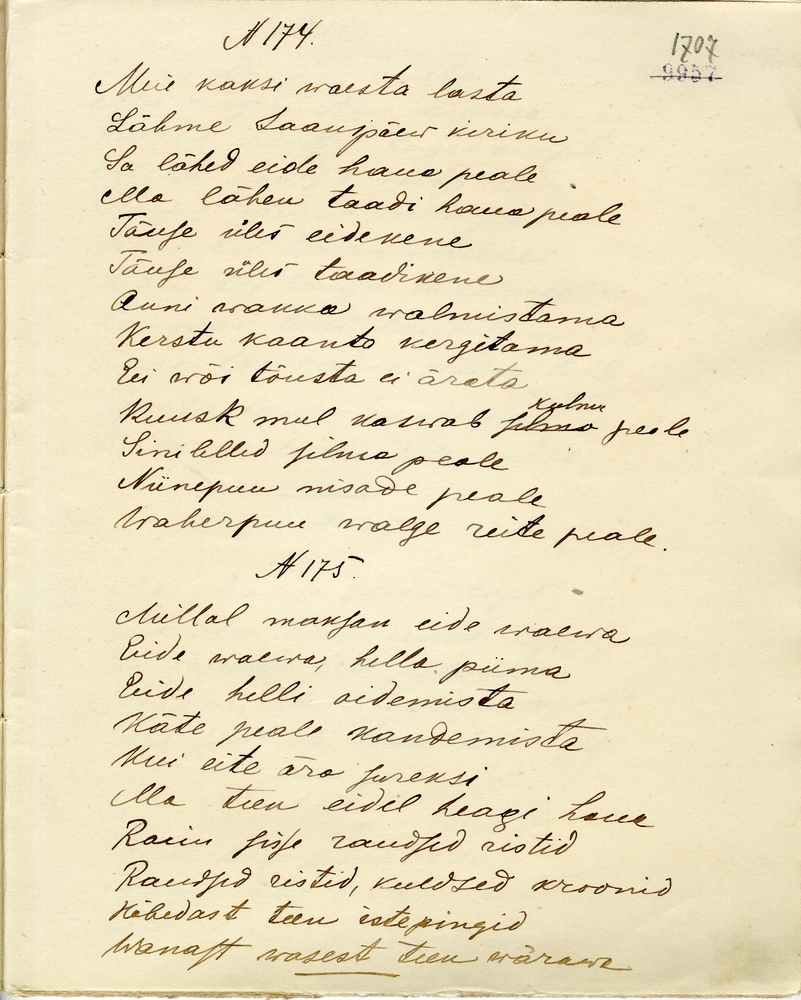 N 174.
1707
9957
Meie kaksi waesta lasta
Lähme Laanepäew kiriku
Sa lähed eide haua peale
Ma lähen taadi haua peale
Tõuse üles eidekene
Tõuse üles taadikene
Anni wakka walmistama
Kerstu kaanto kergitama
Ei wõi tõusta ei ärata
Kuusk mul kaswab silma kulmu peale
Sinililled silma peale
Niinepuu nisade peale
Waherpuu walge reite peale.
N 175.
Millal maksan eide waewa
Eide waewa, hella piima
Eide helli oidemista
Käte peale kandemista
Kui eite ära sureksi
Ma teen eidel heagi haua
Raiun sisse raudsed ristid
Raudsed ristid, kuldsed kroonid
Hõbedast teen istepingid
Wanast wasest teen wärawa